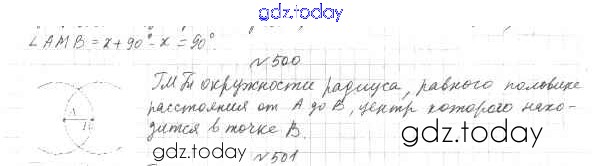 gdz.today
∠AMB = x + 90° - x = 90°.
№500
ГМТ окружности радиуса, равного половине
расстояния от A до B, центр которого нахо-
дится в точке B.
A
B
gdz.today
gdz.today
№501